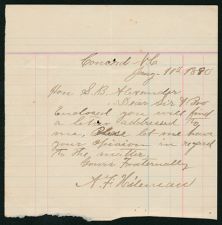 Concord N.C
Jany 11th 1880
Hon S. B. Alexander
Dear Sir & Bro
Enclosed you will find
a letter addressed to
me, Please let me have
your opinion in regard
to the matter
Yours Fraternally
A. F.